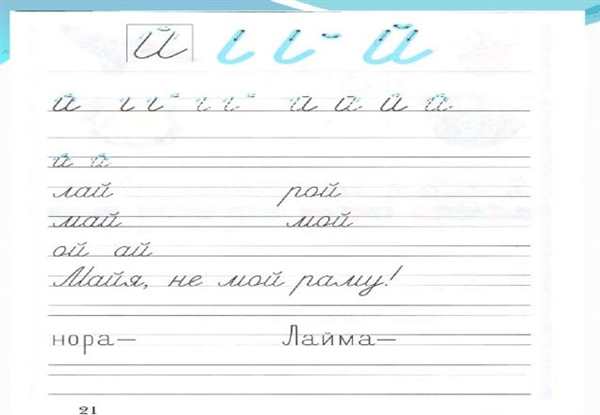 й ι ι ˘ й
й ι ι ˘ ι ι ˘ й й й й
й й
лай рой
май мой
ой ай
Майя, не мой раму!
нора— Лайма—
21